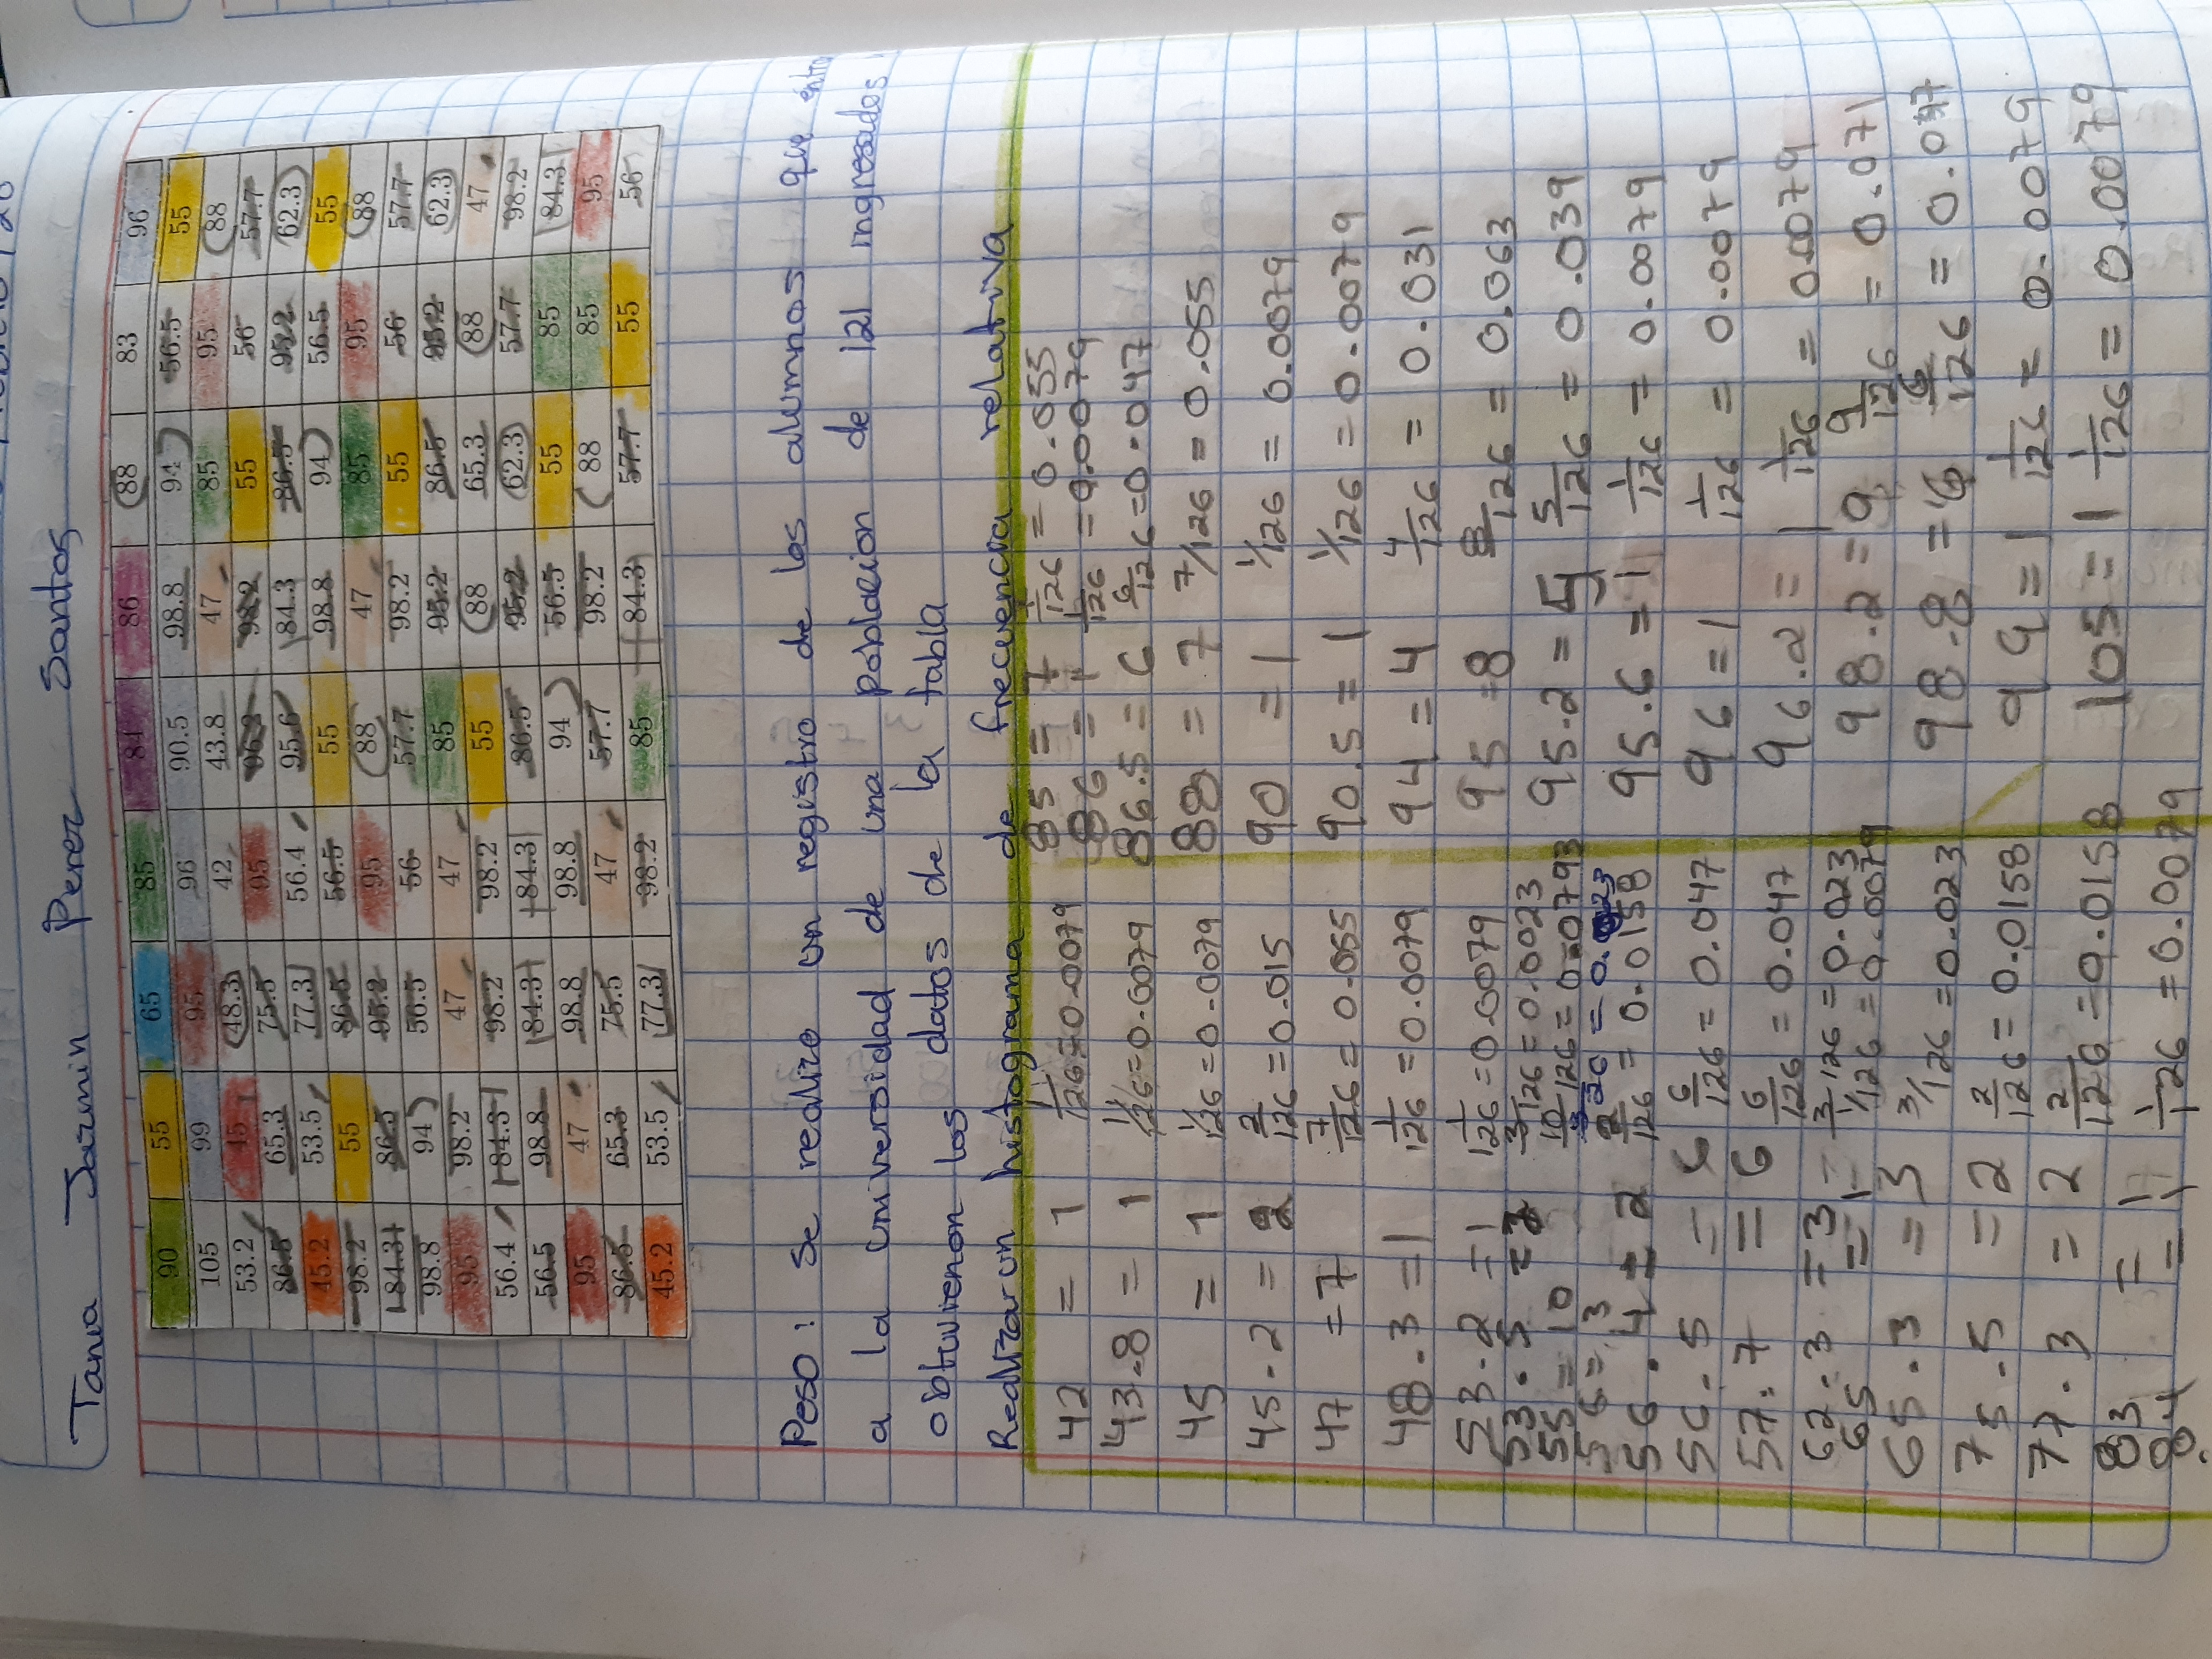 Tania Jazmin Perez Santos
90 55 65 85 84 86 88 83 96
105 99 95 96 90.5 98.8 94 56.5 55
53.2 45 48.3 42 43.8 47 85 95 88
86.5 65.3 75.5 95 96.2 98.2 55 56 57.7
45.2 53.5 77.3 56.4 95.6 84.3 86.5 95.2 62.3
98.2 55 86.5 56.5 55 98.8 94 56.5 55
84.3 86.5 95.2 95 88 47 85 95 88
98.8 94 56.5 56 57.7 98.2 55 56 57.7
95 98.2 47 47 85 95.2 86.5 95.2 62.3
56.4 84.3 98.2 98.2 55 88 65.3 88 47
56.5 98.8 84.3 84.3 86.5 95.2 62.3 57.7 98.2
95 47 98.8 98.8 94 56.5 55 85 84.3
86.5 65.3 75.5 47 57.7 98.2 88 85 95
45.2 53.5 77.3 98.2 85 84.3 57.7 55 56
Peso: Se realizo un registro de los alumnos que
a la universidad de una poblacion de 121 ingresados
obtuvienon los datos de la tabla
Realizar un histograma de frecuencia relativa
42 = 1 1/126 = 0.0079
43.8 = 1 1/126 = 0.0079
45 = 1 1/126 = 0.0079
45.2 = 2 2/126 = 0.015
47 = 7 7/126 = 0.055
48.3 = 1 1/126 = 0.0079
53.2 = 1 1/126 = 0.0079
53.5 = 3/126 = 0.0023
55 = 10 10/126 = 0.0793
56 = 3
56.4 = 2 2/126 = 0.0158
56.5 = 6 6/126 = 0.047
57.7 = 6 6/126 = 0.047
62.3 = 3 - 3/126 = 0.023
65 = 1 - 1/126 = 0.0079
65.3 = 3 3/126 = 0.023
75.5 = 2 2/126 = 0.0158
77.3 = 2 2/126 = 0.0158
83 = 1
84 = 1 1/126 = 0.0079
85 = 7 7/126 = 0.055
86 = 1 1/126 = 0.0079
86.5 = 6 6/126 = 0.047
88 = 7 7/126 = 0.055
90 = 1 1/126 = 0.0079
90.5 = 1 1/126 = 0.0079
94 = 4 4/126 = 0.031
95 = 8 8/126 = 0.063
95.2 = 5 5/126 = 0.039
95.6 = 1 1/126 = 0.0079
96 = 1 1/126 = 0.0079
96.2 = 1 1/126 = 0.0079
98.2 = 9 9/126 = 0.071
98.8 = 6 6/126 = 0.047
99 = 1 1/126 = 0.0079
105 = 1 1/126 = 0.0079